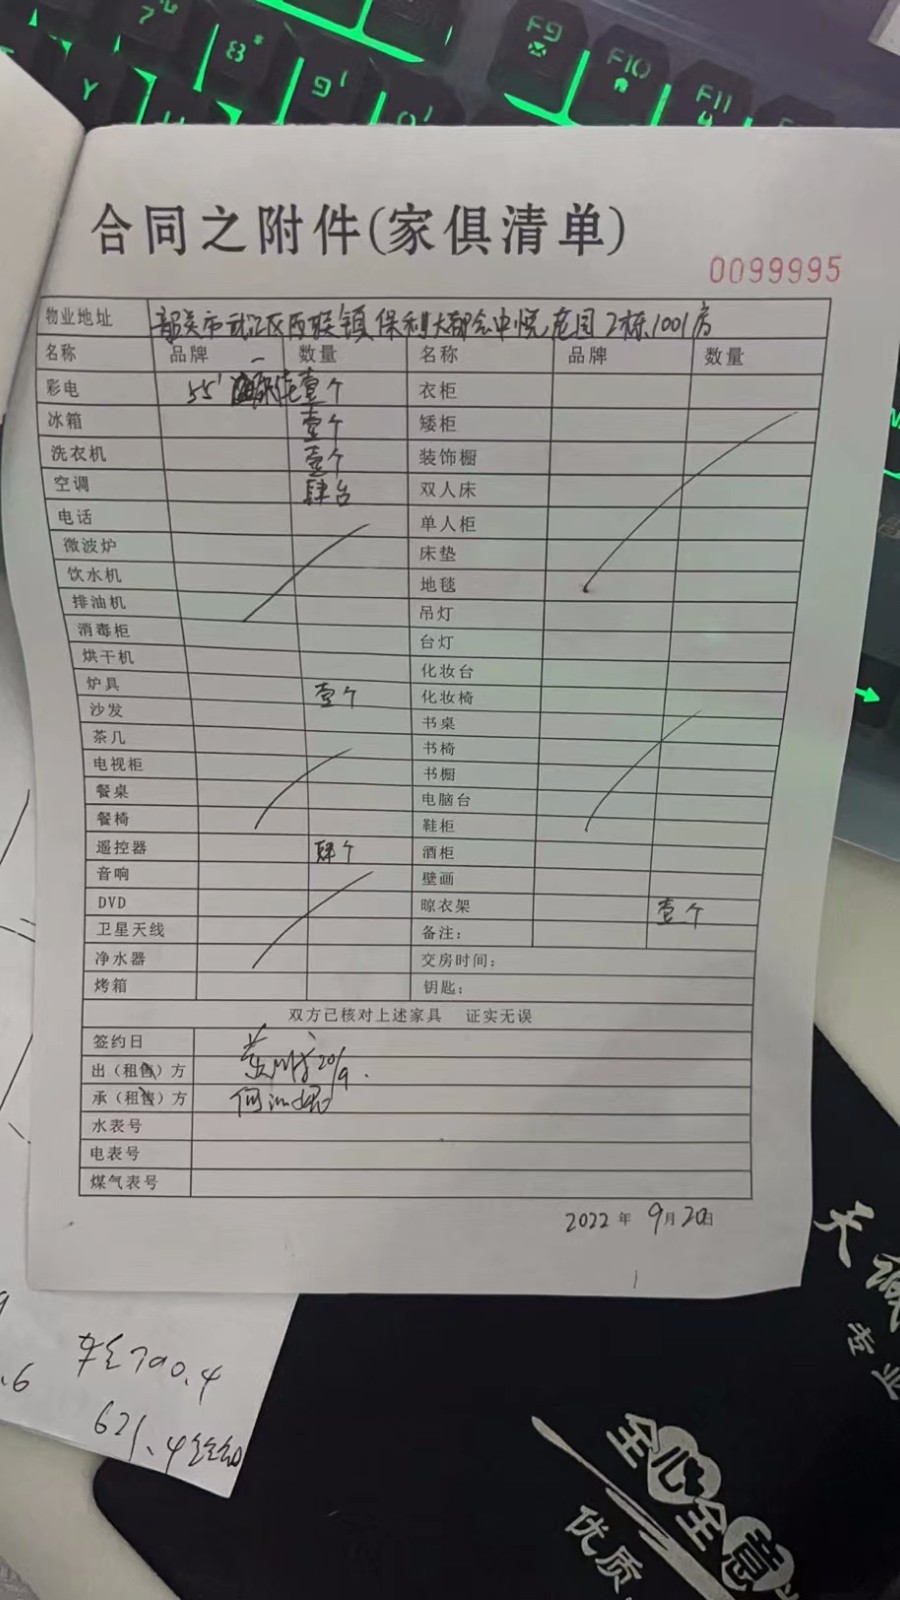 7
8 *
9 (
0 )
Y
F9
F10
F11
合同之附件(家俱清单)
0099995
物业地址 韶关市武江区西联镇保利大都会中悦花园2栋1001房
名称 品牌 数量 名称 品牌 数量
彩电 55' 壹个 衣柜
冰箱 壹个 矮柜
洗衣机 壹个 装饰橱
空调 肆台 双人床
电话 单人柜
微波炉 床垫
饮水机 地毯
排油机 吊灯
消毒柜 台灯
烘干机 化妆台
炉具 壹个 化妆椅
沙发 书桌
茶几 书椅
电视柜 书橱
餐桌 电脑台
餐椅 鞋柜
遥控器 肆个 酒柜
音响 壁画
DVD 晾衣架 壹个
卫星天线 备注：
净水器 交房时间：
烤箱 钥匙：
双方已核对上述家具 证实无误
签约日
出（租售）方 20/9.
承（租售）方
水表号
电表号
煤气表号
2022年9月20日
.6 700.4
621.4
天诚
专业
全心全意
优质